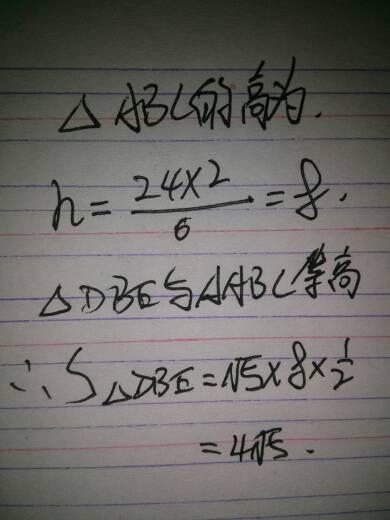 △ABC的高为.
h=24×2/6=8.
△DBE与△ABC等高
∴S△DBE=√5×8×1/2
=4√5.